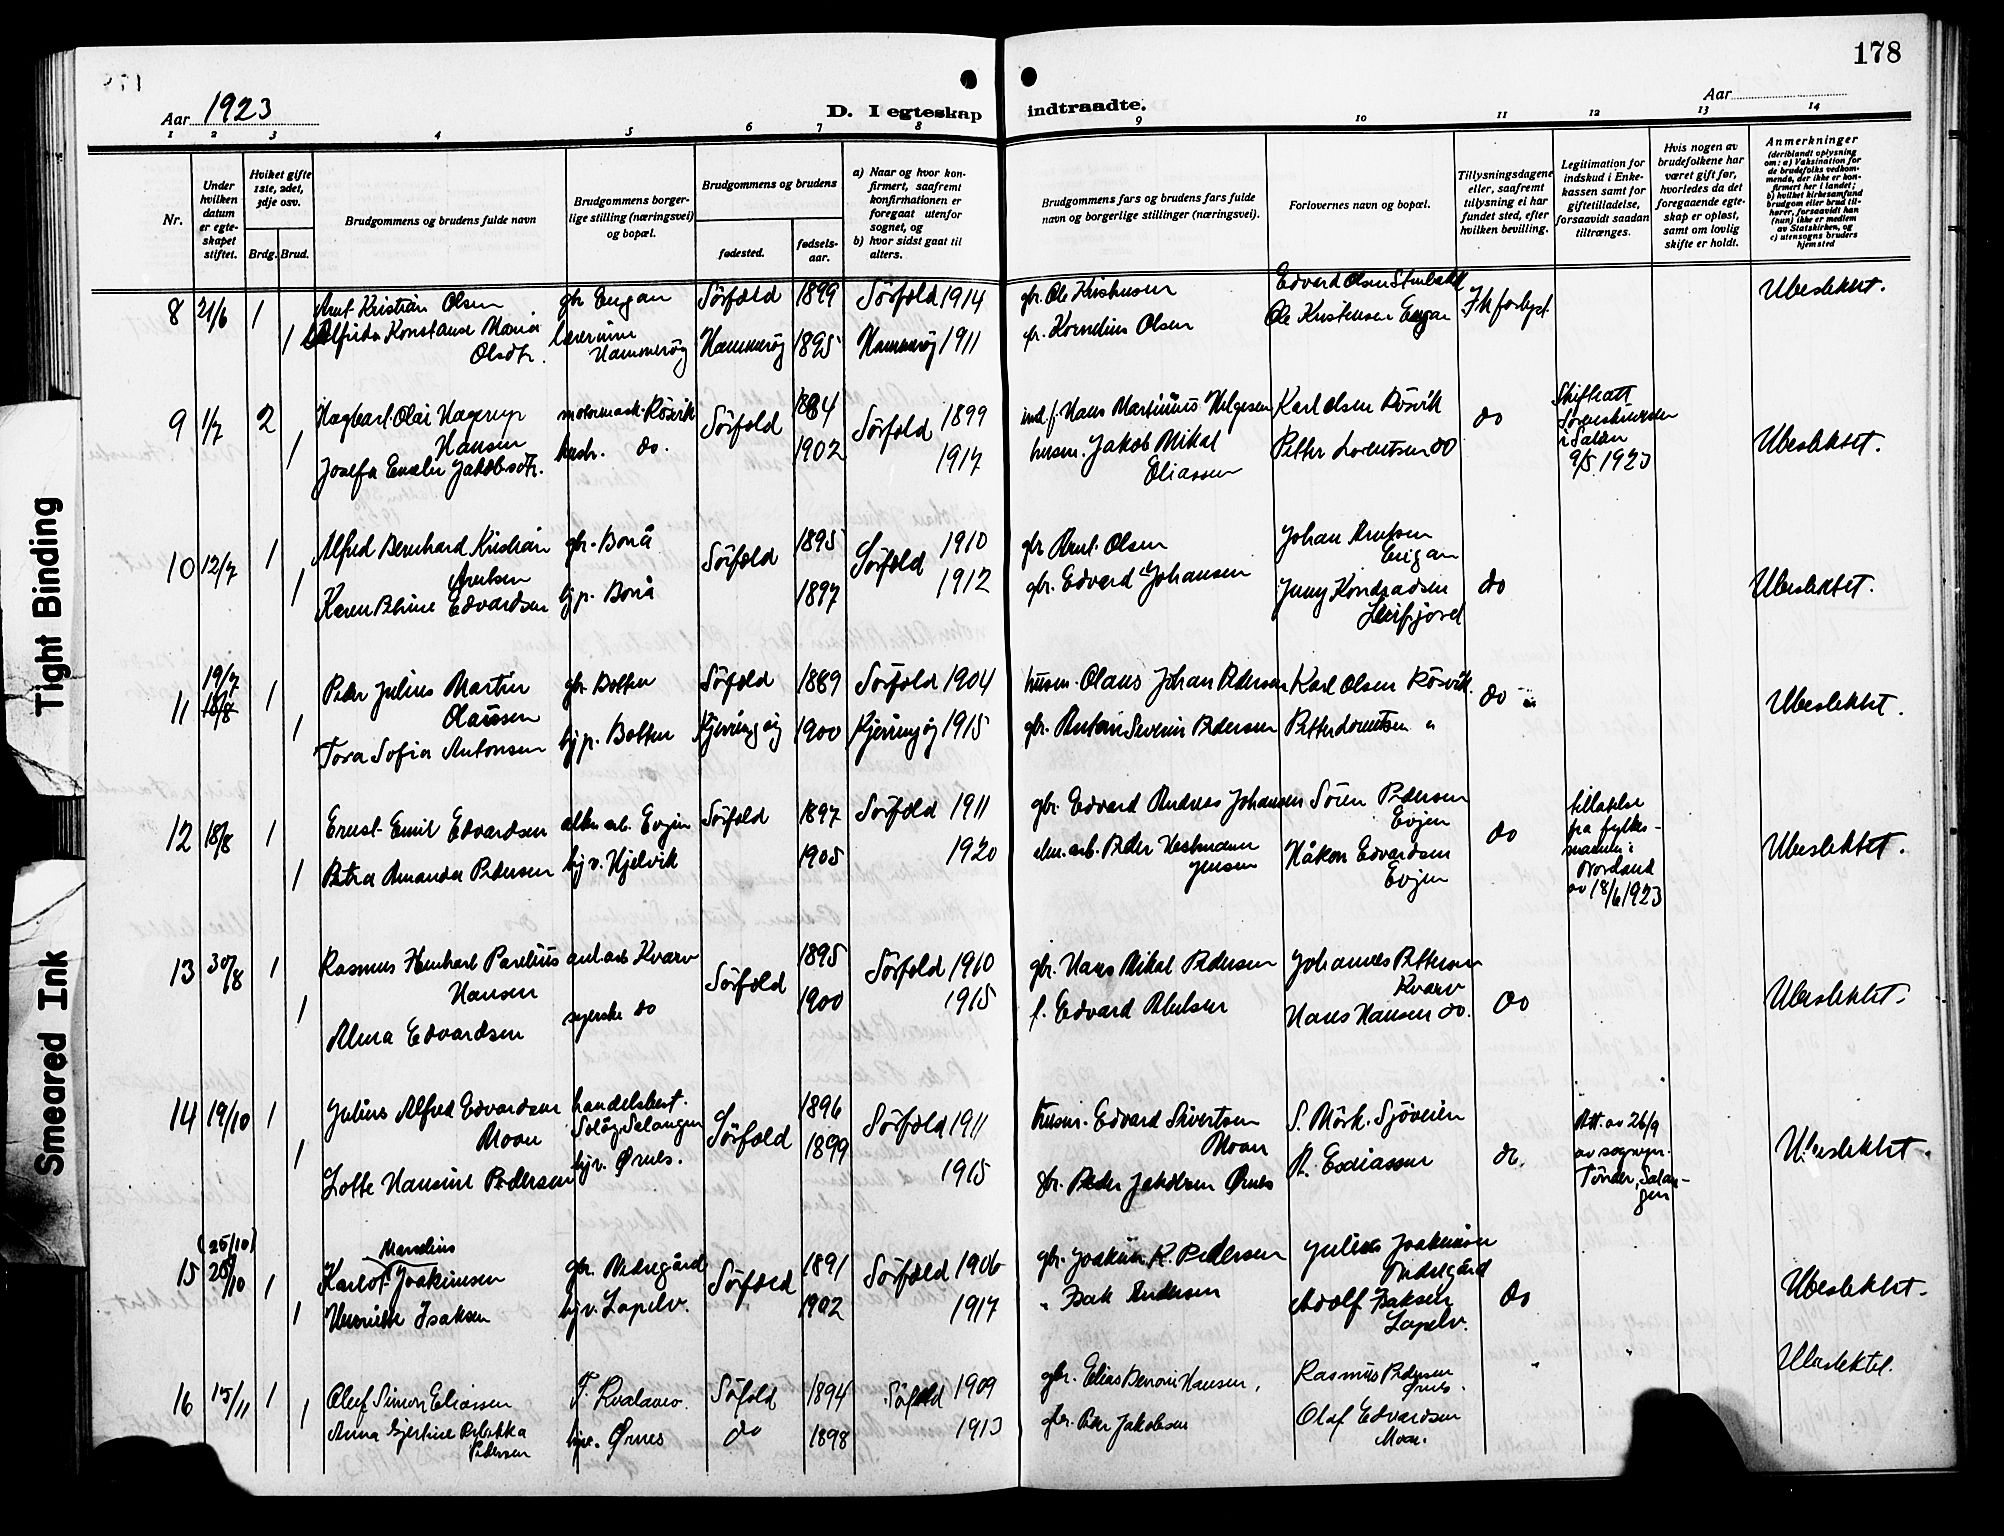 178
Aar 1923
D. I egteskap indtraadte.
Aar
1 2 3 4 5 6 7 8 9 10 11 12 13 14
Nr.
Under hvilken datum er egteskapet stiftet.
Hviket gifte 1ste, 2det, 3dje osv.
Brdg. Brud.
Brudgommens og brudens fulde navn
Brudgommens borgerlige stilling (næringsvei) og bopæl.
Brudgommens og brudens
fødested.
fødselsaar.
a) Naar og hvor konfirmert, saafremt konfirmationen er foregaat utenfor sognet, og
b) hvor sidst gaat til alters.
Brudgommens fars og brudens fars fulde navn og borgerlige stillinger (næringsvei).
Forlovernes navn og bopæl.
Tillysningsdagene eller, saafremt tillysning ei har fundet sted, efter hvilken bevilling.
Legitimation for indskud i Enkekassen samt for giftetilladelse, forsaavidt saadan tiltrænges.
Hvis nogen av brudefolkene har været gift før, hvorledes da det foregaaende egteskap er opløst, samt om lovlig skifte er holdt.
Anmerkninger
(deriblandt oplysning om: a) Vaksination for de brudefolks vedkommende, der ikke er konfirmert her i landet; b) hvilket kirkesamfund brudgom eller brud tilhører, forsaavidt han (hun) ikke er medlem av Statskirken, og c) utensogns bruders hjemsted
8 21/6 1 Arnt Kristian Olsen gbr Engan Sörfold 1899 Sörfold 1914 gbr. Ole Kristensen Edvard Olsen Ubeslektet.
1 Alfrida Konstanse Maria Olsdtr. lærerinne Hammeröy Hammeröy 1895 Hammeröy 1911 gbr. Kornelius Olsen Ole Kristensen Engan
9 1/7 2 Hagbart Olai Hagerup Hansen Rösvik Sörfold 1884 Sörfold 1899 Hans Martinius Helgesen Karl Olsen Rösvik do Skifteatt Sorenskriveren i Salten 9/5 1923 Ubeslektet.
1 Josefa Emelie Jakobsdtr. do. 1902 1917 husm. Jakob Mikal Eliassen Petter Lorentsen do
10 12/7 1 Alfred Bernhard Kristian Arntsen gbr. Bonå Sörfold 1895 Sörfold 1910 gbr Arnt Olsen Johan Arntsen Engan do Ubeslektet.
1 Karen Edvardsen hjp. Bonå 1897 1912 gbr. Edvard Johansen Jenny Kondradsen Leirfjord
11 19/7 18/8 1 Peder Julius Martin Olaussen gbr Botten Sörfold 1889 Sörfold 1904 husm. Olaus Johan Pedersen Karl Olsen Rösvik. do Ubeslektet.
1 Tora Sofia Antonsen hjp. Botten Kjerringöy 1900 Kjerringöy 1915 gbr. Anton Severin Pedersen Petter Lorentsen "
12 18/8 1 Ernst Emil Edvardsen Evjen Sörfold 1897 Sörfold 1911 gbr. Edvard Andreas Johansen Sören Pedersen Evjen do tillatelse fra fylkesmannen i Nordland av 18/6 1923 Ubeslektet.
1 Petra Amanda Pedersen hjv. Hjelvik 1905 1920 Peder Jensen Håkon Edvardsen Evjen
13 30/8 1 Rasmus Parelius Hansen Kvarv Sörfold 1895 Sörfold 1910 gbr. Hans Mikal Pedersen Johannes Pettersen Kvarv do Ubeslektet.
1 Alma Edvardsen syerske do 1900 1915 f. Edvard Hans Hansen do.
14 19/10 1 Julius Alfred Edvardsen Moan handelsbest. Salangen Sörfold 1896 Sörfold 1911 husm. Edvard Sivertsen Moan S. Mörk. Sjöveien do. Att. av 26/9 av sogepr. Tönder, Salangen Ubeslektet.
1 Lotte Hansine Pedersen hjv. Ørnes. 1899 1915 gbr. Peder Jakobsen Ørnes
15 (25/10) 28/10 1 Karlot Marselius Joakimsen gbr. Nedregård Sörfold 1891 Sörfold 1906 gbr. Joakim K. Pedersen Julius Joakimsen Nedregård do Ubeslektet.
1 Henriette Isaksen hjv. Lapelv. 1902 1917 " Isak Andersen Adolf Isaksen Lapelv.
16 15/11 1 Oluf Simon Eliassen F. Sörfold 1894 Sörfold 1909 gbr. Elias Benoni Hansen, Rasmus Pedersen Ørnes. " " Ubeslektet.
1 Anna Gjertine Rebekka Pedersen hjv. Ørnes do 1898 1913 gbr. Peder Jakobsen Olaf Edvardsen Moan.
Tight Binding
Smeared Ink